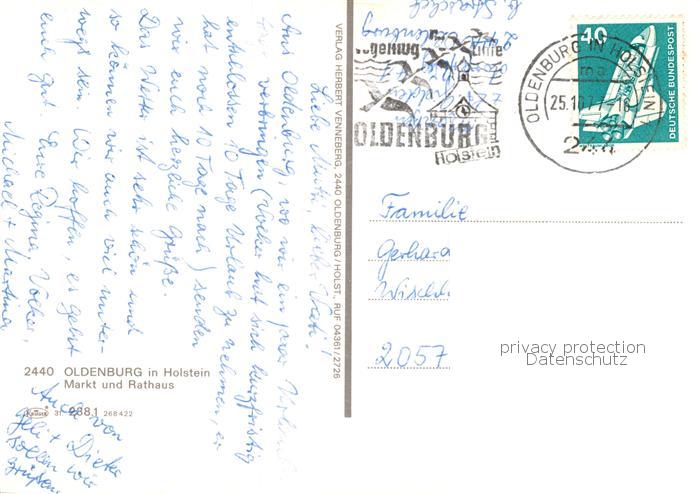 Liebe Mutti, lieber Vati!
Aus Oldenburg, wo wir ein paar
verbringen (Volker hat sich kurzfristig
entschlossen 10 Tage Urlaub zu nehmen, er
hat noch 10 Tage nach) senden
wir euch herzliche Grüße.
Das Wetter ist sehr schön und
so können wir auch viel unter-
wegs sein. Wir hoffen, es geht
euch gut. Eure Regina, Volker,
Michael + Martina
Auch von
+ Dieter
sollen wir
grüßen.
2440 OLDENBURG in Holstein
Markt und Rathaus
Krüger 988.1 268422
VERLAG HERBERT VENNEBERG, 2440 OLDENBURG/HOLST., RUF 04361/2726
Vogelfluglinie
OLDENBURG
Holstein
OLDENBURG IN HOLSTEIN
ma
25.10.77-18
244
40
DEUTSCHE BUNDESPOST
Familie
Gerhard
2057
privacy protection
Datenschutz